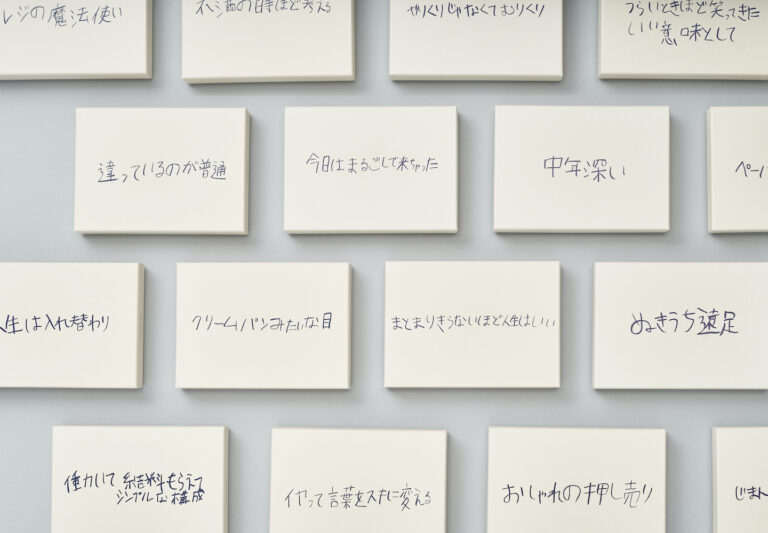 レジの魔法使い
の日時ほど考える
やりくりじゃなくてむりくり
つらいときほど笑ってきた
いい意味として
違っているのが普通
今日はまるごしで来ちゃった
中年深い
ペーパ
人生は入れ替わり
クリームパンみたいな目
まとまりきらないほど人生はいい
ぬきうち遠足
働いて 給料もらえて
シンプルな構成
イヤって言葉をスキに変える
おしゃれの押し売り
じまん